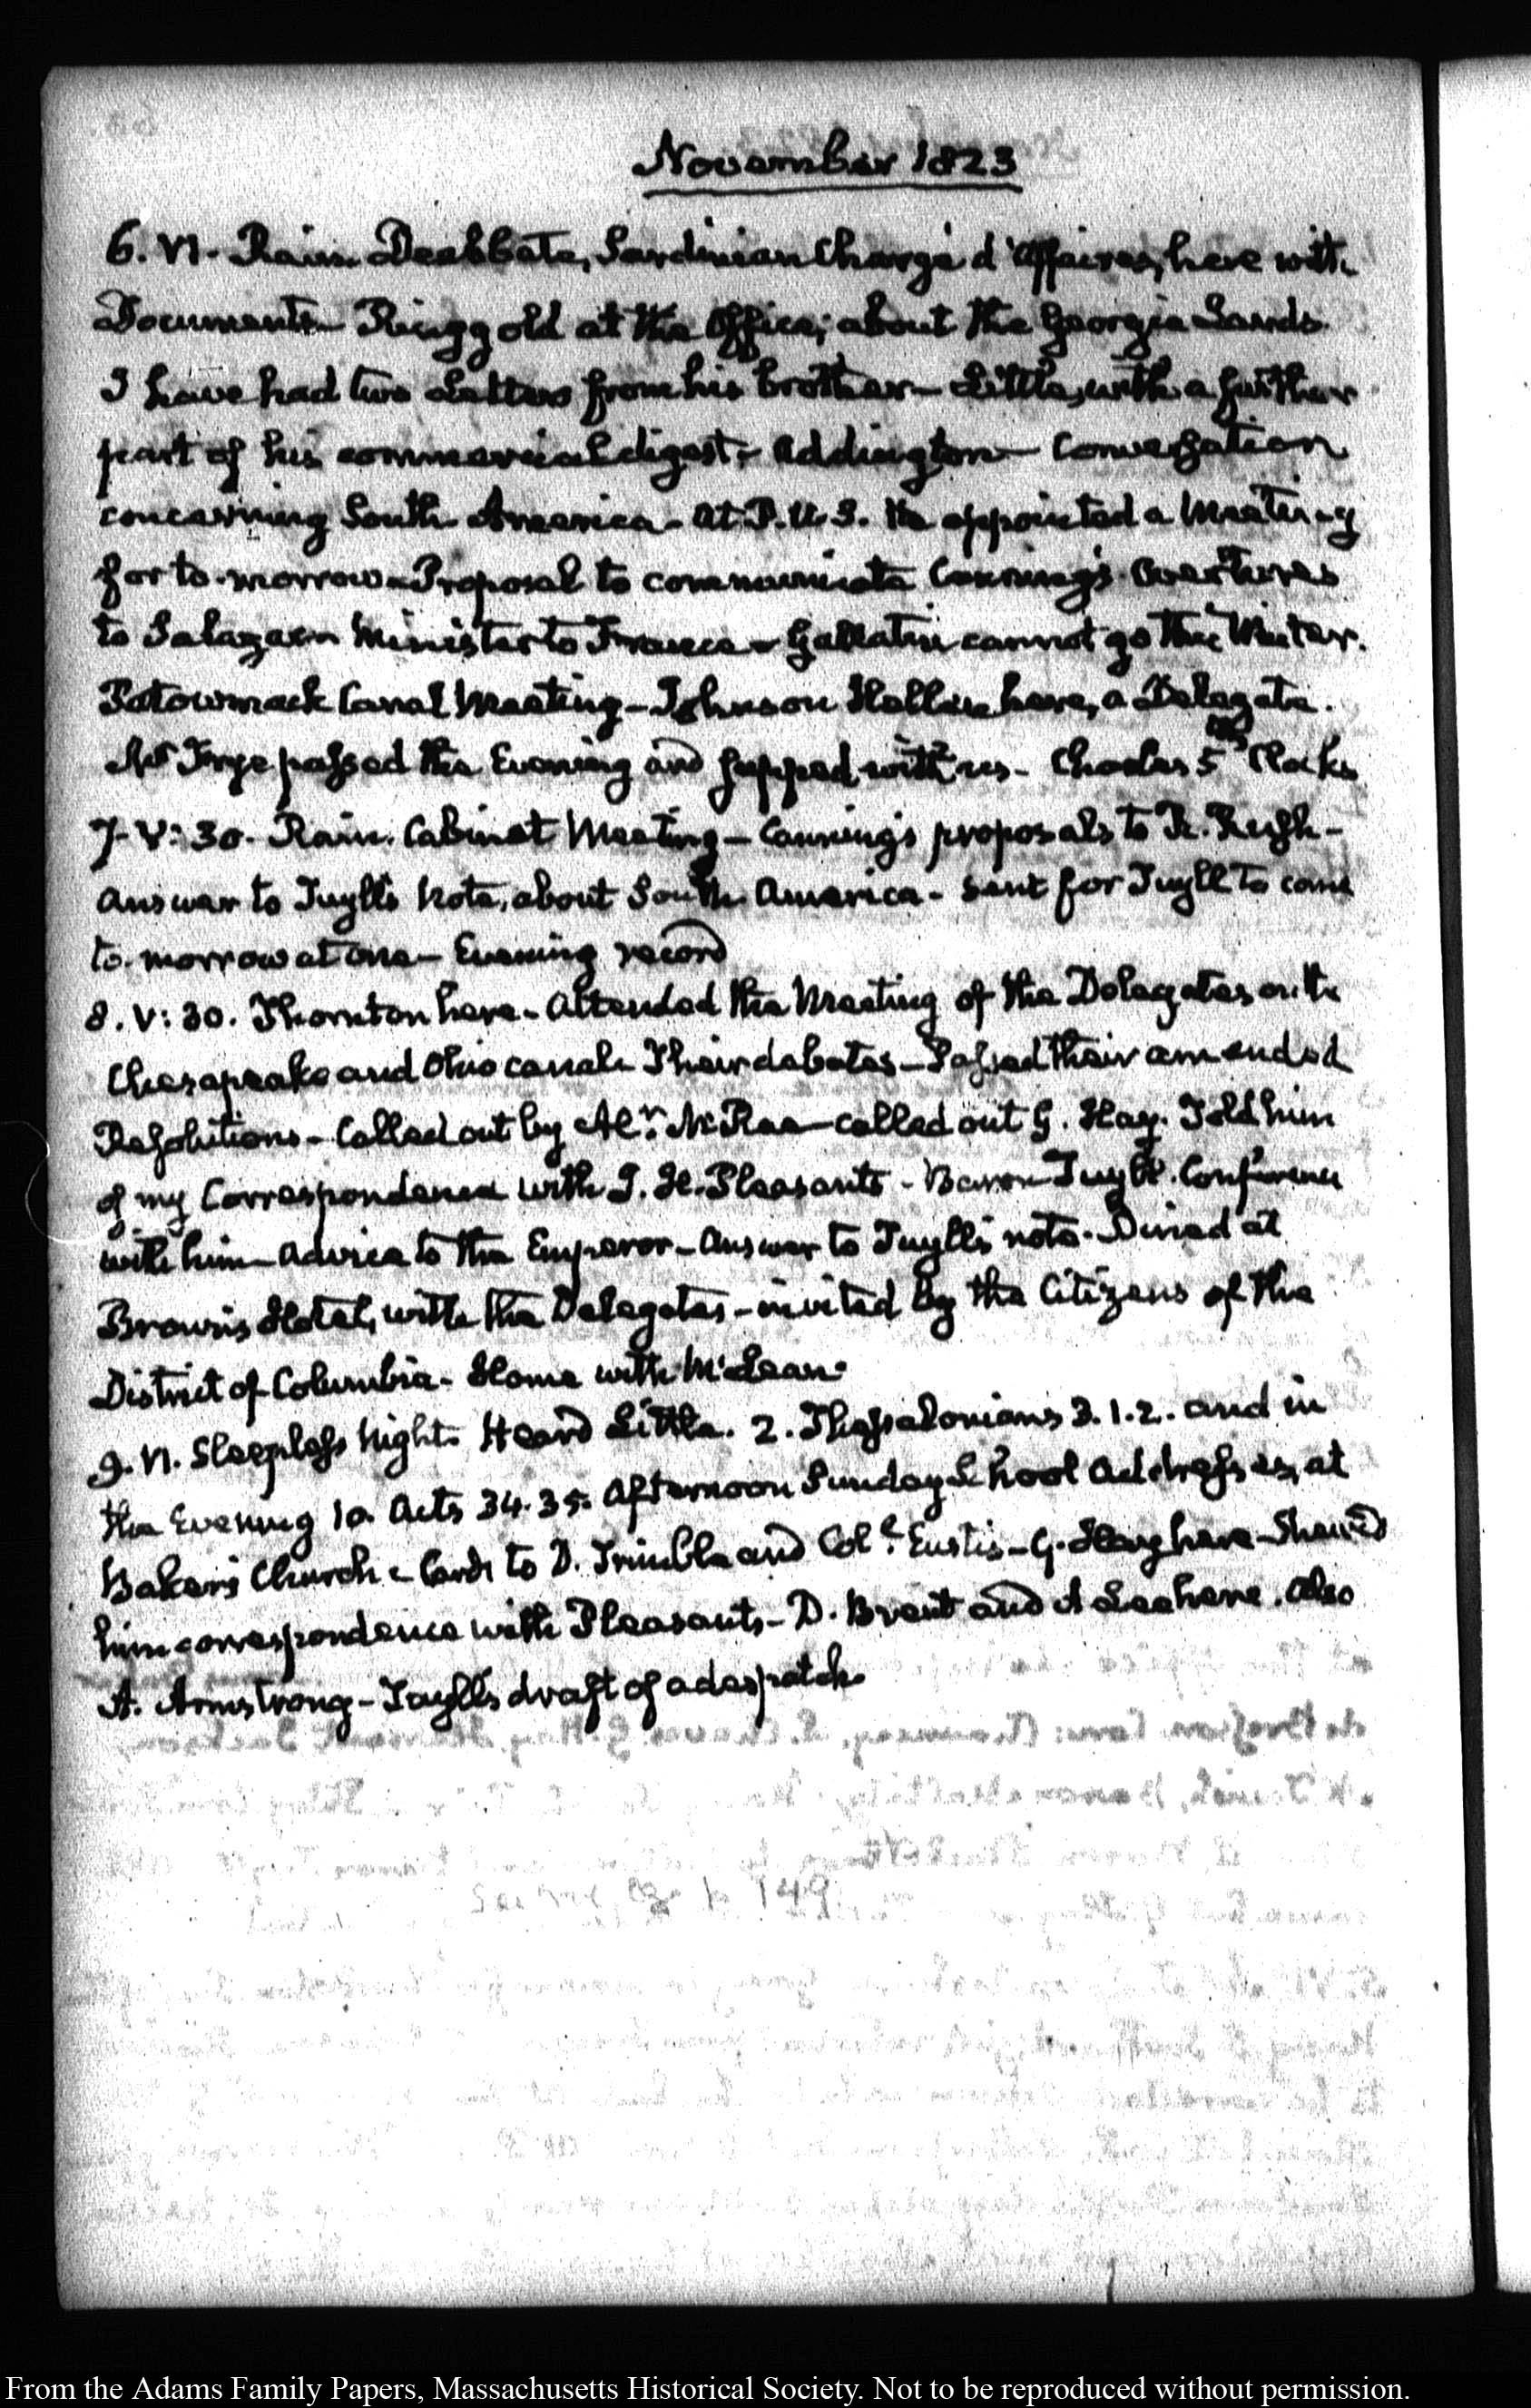 November 1823
6. VI. Rain. Deabbate, Sardinian Chargé d'Affaires, here with
Documents. Ringgold at the Office; about the Georgia Lands.
I have had two Letters from his brother — Little, with a further
part of his commercial digest. Addington — Conversation
concerning South America. At P.U.S. He appointed a Meeting
for to-morrow. Proposal to communicate Canning's Overtures
to Salazar. Minister to France. Gallatin cannot go this Winter.
Potowmack Canal Meeting — Johnson Hellen here, a Delegate.
Mr Frye passed the Evening and supped with us. Charles 5th
7. V: 30. Rain. Cabinet Meeting — Canning's proposals to R. Rush —
Answer to Tuyll's Note, about South America. Sent for Tuyll to come
to-morrow at one — Evening record
8. V: 30. Thornton here. Attended the Meeting of the Delegates on the
Chesapeake and Ohio canal. Their debates — Passed their amended
Resolutions — Called out by Alr. McRae — called out G. Hay. Told him
of my Correspondence with J. H. Pleasants — Baron Tuyll. Conference
with him — Advice to the Emperor — Answer to Tuyll's note. Dined at
Brown's Hotel, with the Delegates — invited by the Citizens of the
District of Columbia. Home with McLean.
9. VI. Sleepless Night. Heard Little. 2. Thessalonians 3. 1. 2. and in
the Evening 10. Acts 34. 35. Afternoon Sunday School Addresses, at
Baker's Church. Cards to D. Trimble and Coll. Eustis — G. Hay here — Shew'd
him correspondence with Pleasants — D. Brent and A Lee here. Also
A. Armstrong — Tuyll's draft of a despatch.
From the Adams Family Papers, Massachusetts Historical Society. Not to be reproduced without permission.